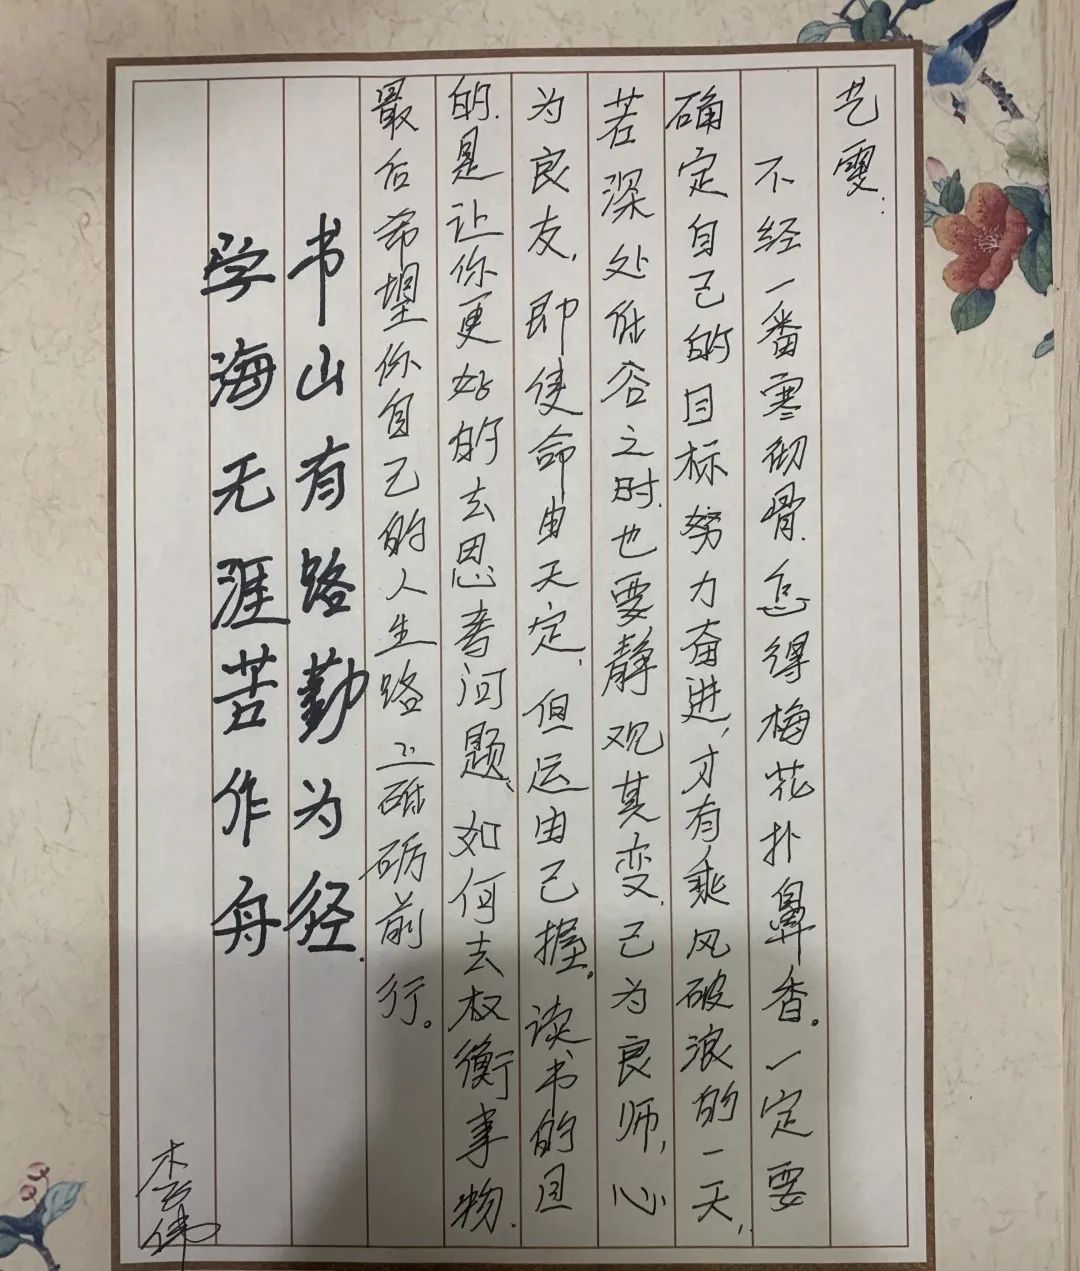 艺雯：
不经一番寒彻骨，怎得梅花扑鼻香。一定要
确定自己的目标努力奋进，才有乘风破浪的一天，
若深处低谷之时，也要静观其变，己为良师，心
为良友，即使命由天定，但运由己握。读书的目
的，是让你更好的去思考问题，如何去权衡事物，
最后希望你自己的人生路上砥砺前行。
书山有路勤为径，
学海无涯苦作舟
伟